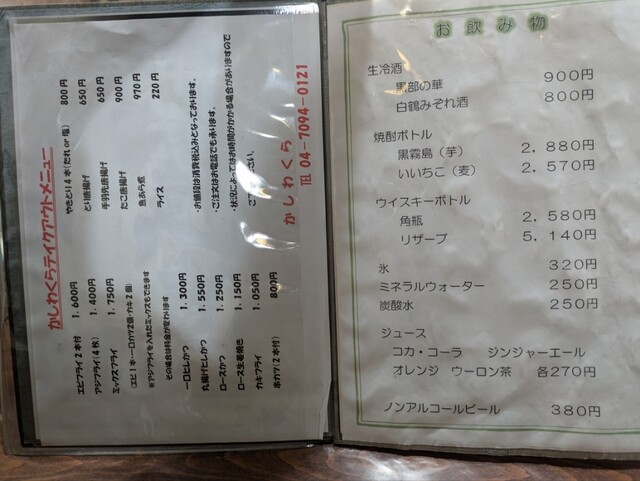 かしわくらテイクアウトメニュー
エビフライ2本付 1.600円
アジフライ(4枚) 1.400円
ミックスフライ 1.750円
(エビ1本・一口カツ2個・カキ2個)
※アジフライを入れたミックスもできます
その場合は料金が変わります
一口ヒレかつ 1.300円
丸揚げヒレかつ 1.550円
ロースかつ 1.250円
ロース生姜焼き 1.150円
カキフライ 1.050円
串カツ(2本付) 800円
やきとり4本(たれ or 塩) 800円
とり唐揚げ 650円
手羽先唐揚げ 650円
たこ唐揚げ 900円
魚あら煮 970円
ライス 220円
・お値段は消費税込みとなっております。
・ご注文はお電話でも承ります。
・状況によってはお時間がかかる場合がありますので
かしわくら
TEL 04-7094-0121
お飲み物
生冷酒
黒部の華 900円
白鶴みぞれ酒 800円
焼酎ボトル
黒霧島(芋) 2,880円
いいちこ(麦) 2,570円
ウイスキーボトル
角瓶 2,580円
リザーブ 5,140円
氷 320円
ミネラルウォーター 250円
炭酸水 250円
ジュース
コカ・コーラ ジンジャーエール
オレンジ ウーロン茶 各270円
ノンアルコールビール 380円